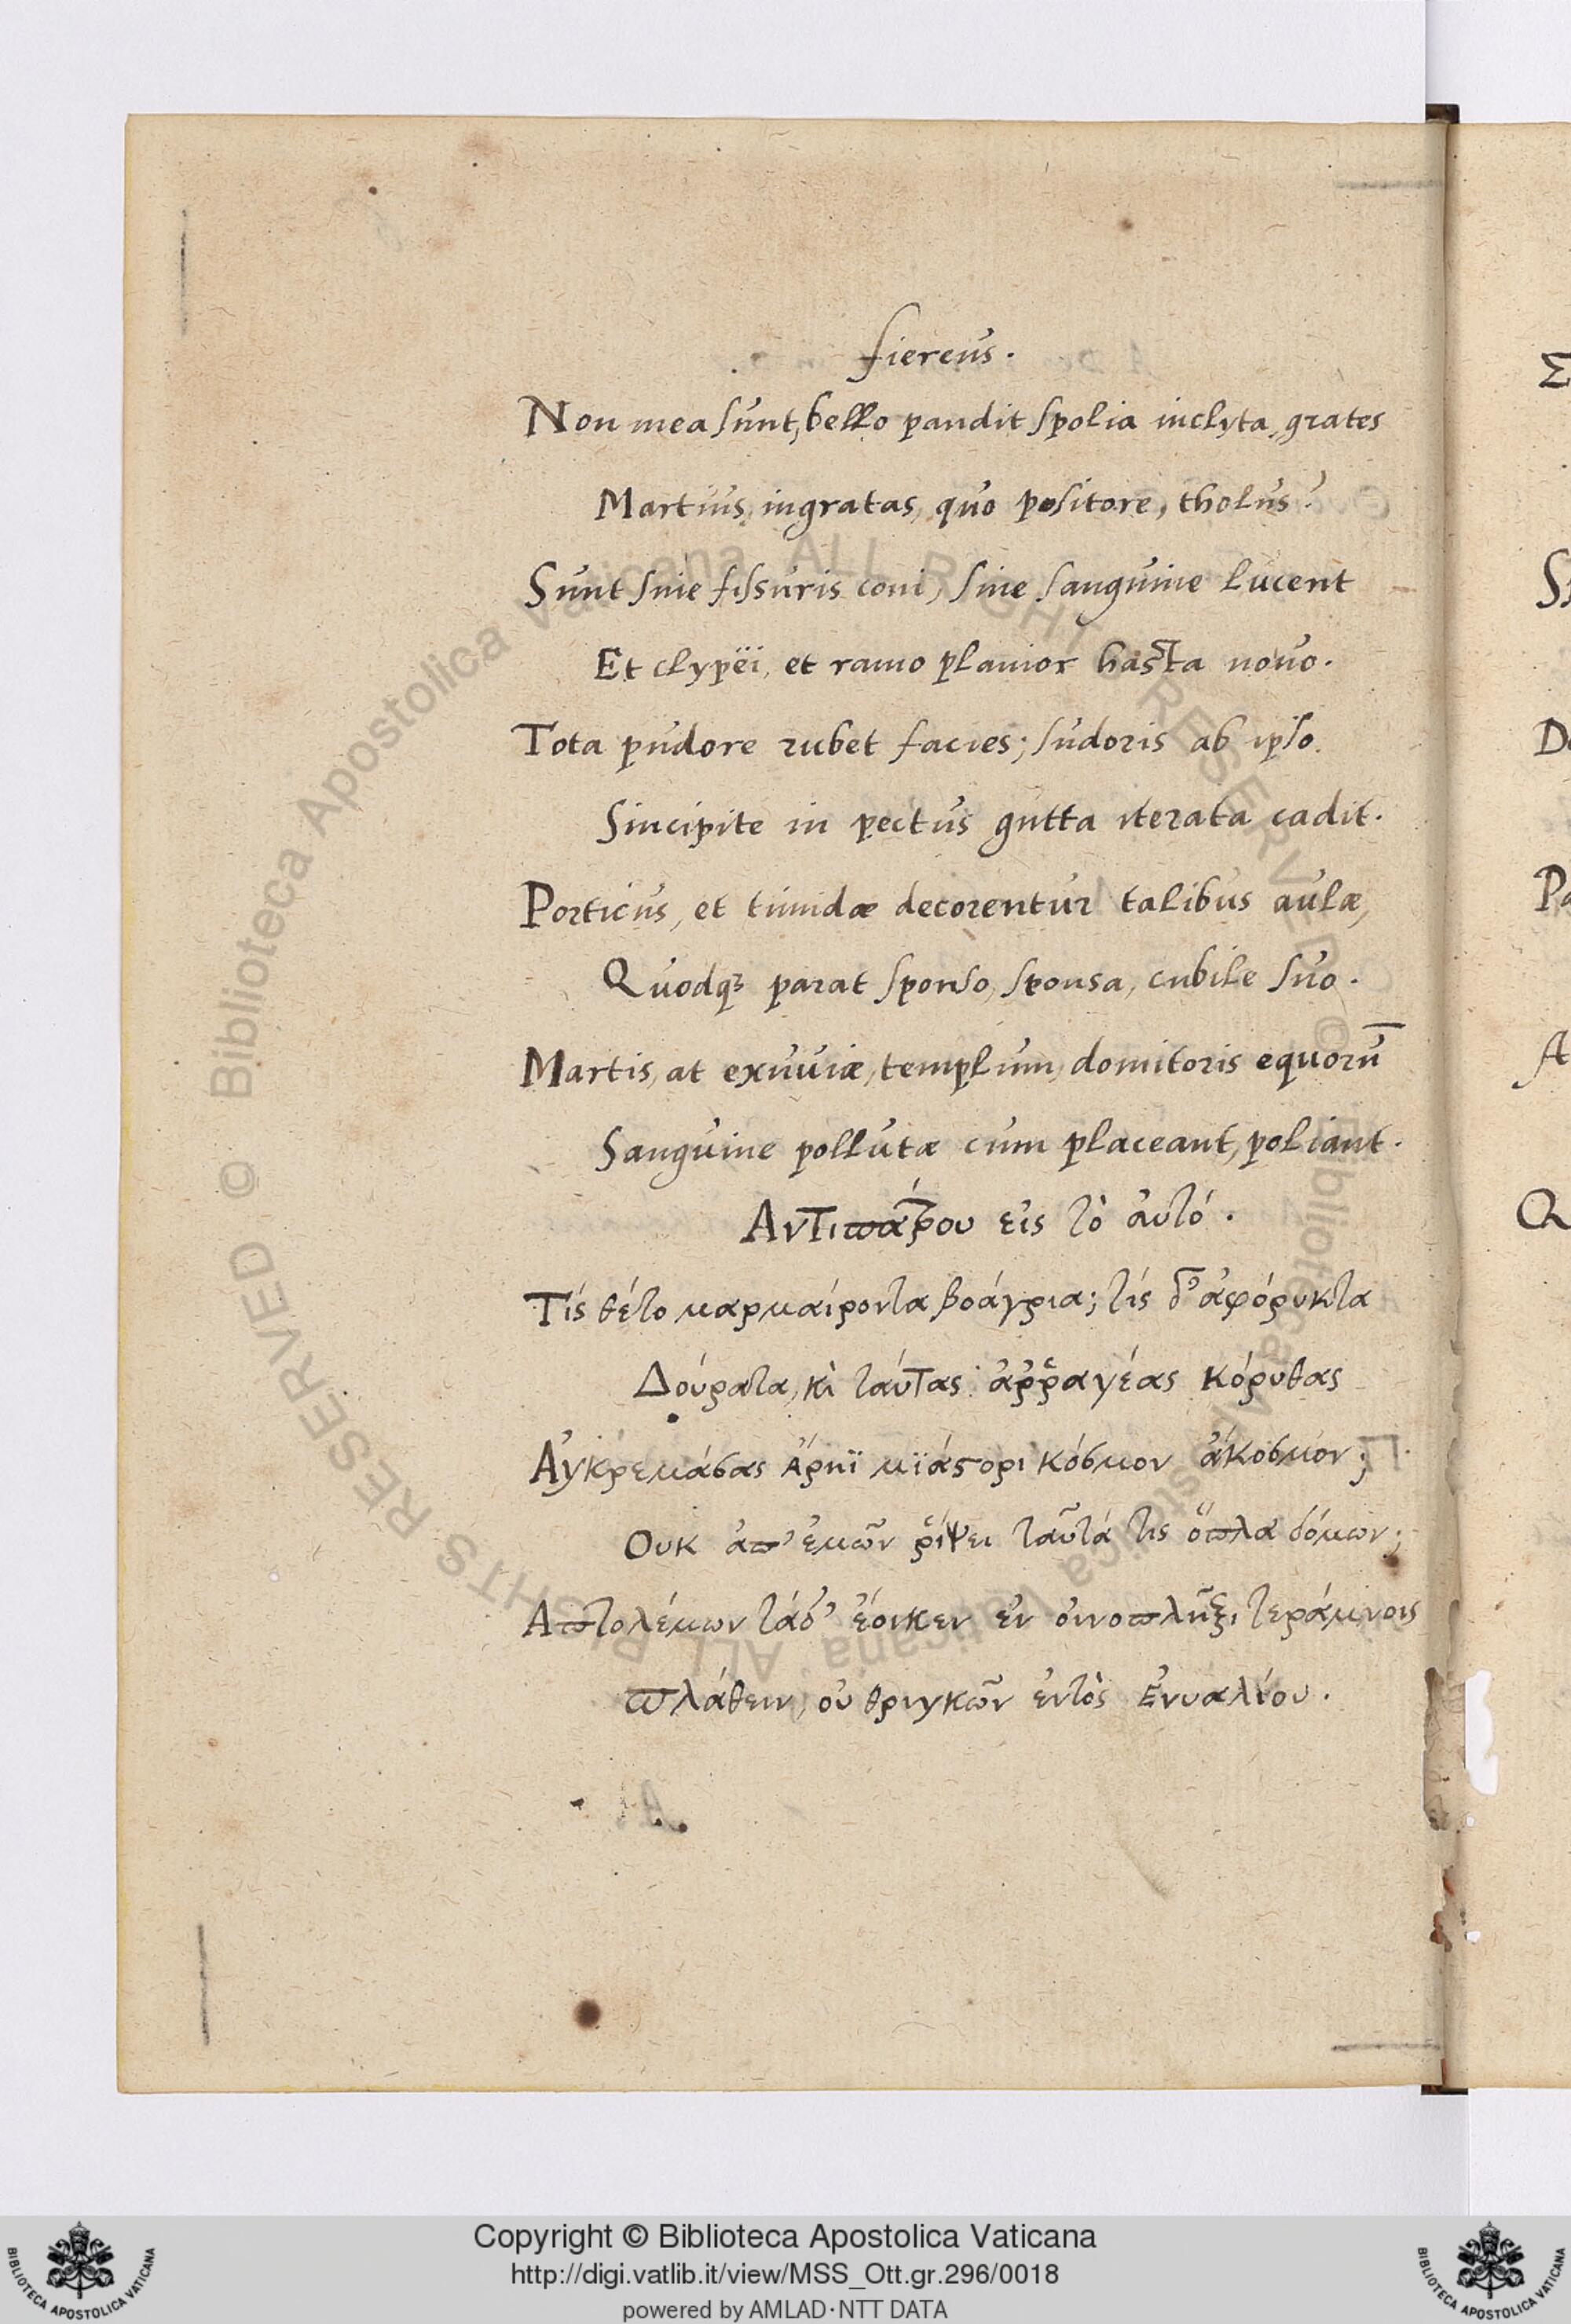 fiereus.
Non mea sunt, bello pandit spolia inclyta, grates
Martius, ingratas, quo positore, tholus?
Sunt sine fissuris coni, sine sanguine lucent
Et clypëi, et ramo planior hasta novo.
Tota pudore rubet facies; sudoris ab ipso
Sincipite in pectus gutta iterata cadit.
Porticus, et timidæ decorentur talibus aulæ,
Quodq; parat sponso, sponsa, cubile suo.
Martis, at exuviæ, templum, domitoris equorū
Sanguine pollutæ cum placeant, poliant.
Αντιπάτρου εἰς τὸ ἀυτό.
Τίς θέτο μαρμαίροντα βοάγρια; τίς δ' ἀφόρυκτα
Δούρατα, κὶ ταύτας ἀῤῥαγέας κόρυθας
Ἀγκρεμάσας Ἄρηϊ μϊάστορι κόσμον ἄκοσμον;
Ουκ ἀπ' ἐμῶν ῥίψει ταῦτά τις ὅπλα δόμων;
Απτολέμων τάδ' ἔοικεν ἐν ὀινοπλῆξι τεράμνοις
πλάθειν, οὐ θριγκῶν ἐντὸς Ἐνυαλίου.
Copyright © Biblioteca Apostolica Vaticana
http://digi.vatlib.it/view/MSS_Ott.gr.296/0018
powered by AMLAD·NTT DATA